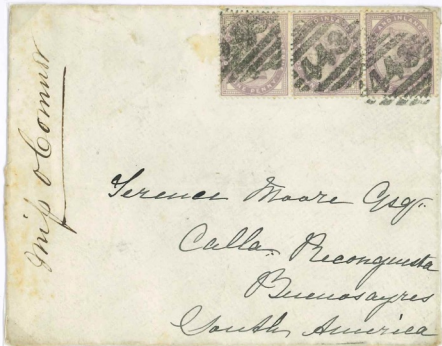 Miss O Connor
Terence Moore Esq.
Calla. Reconquista
Buenosayres
South America